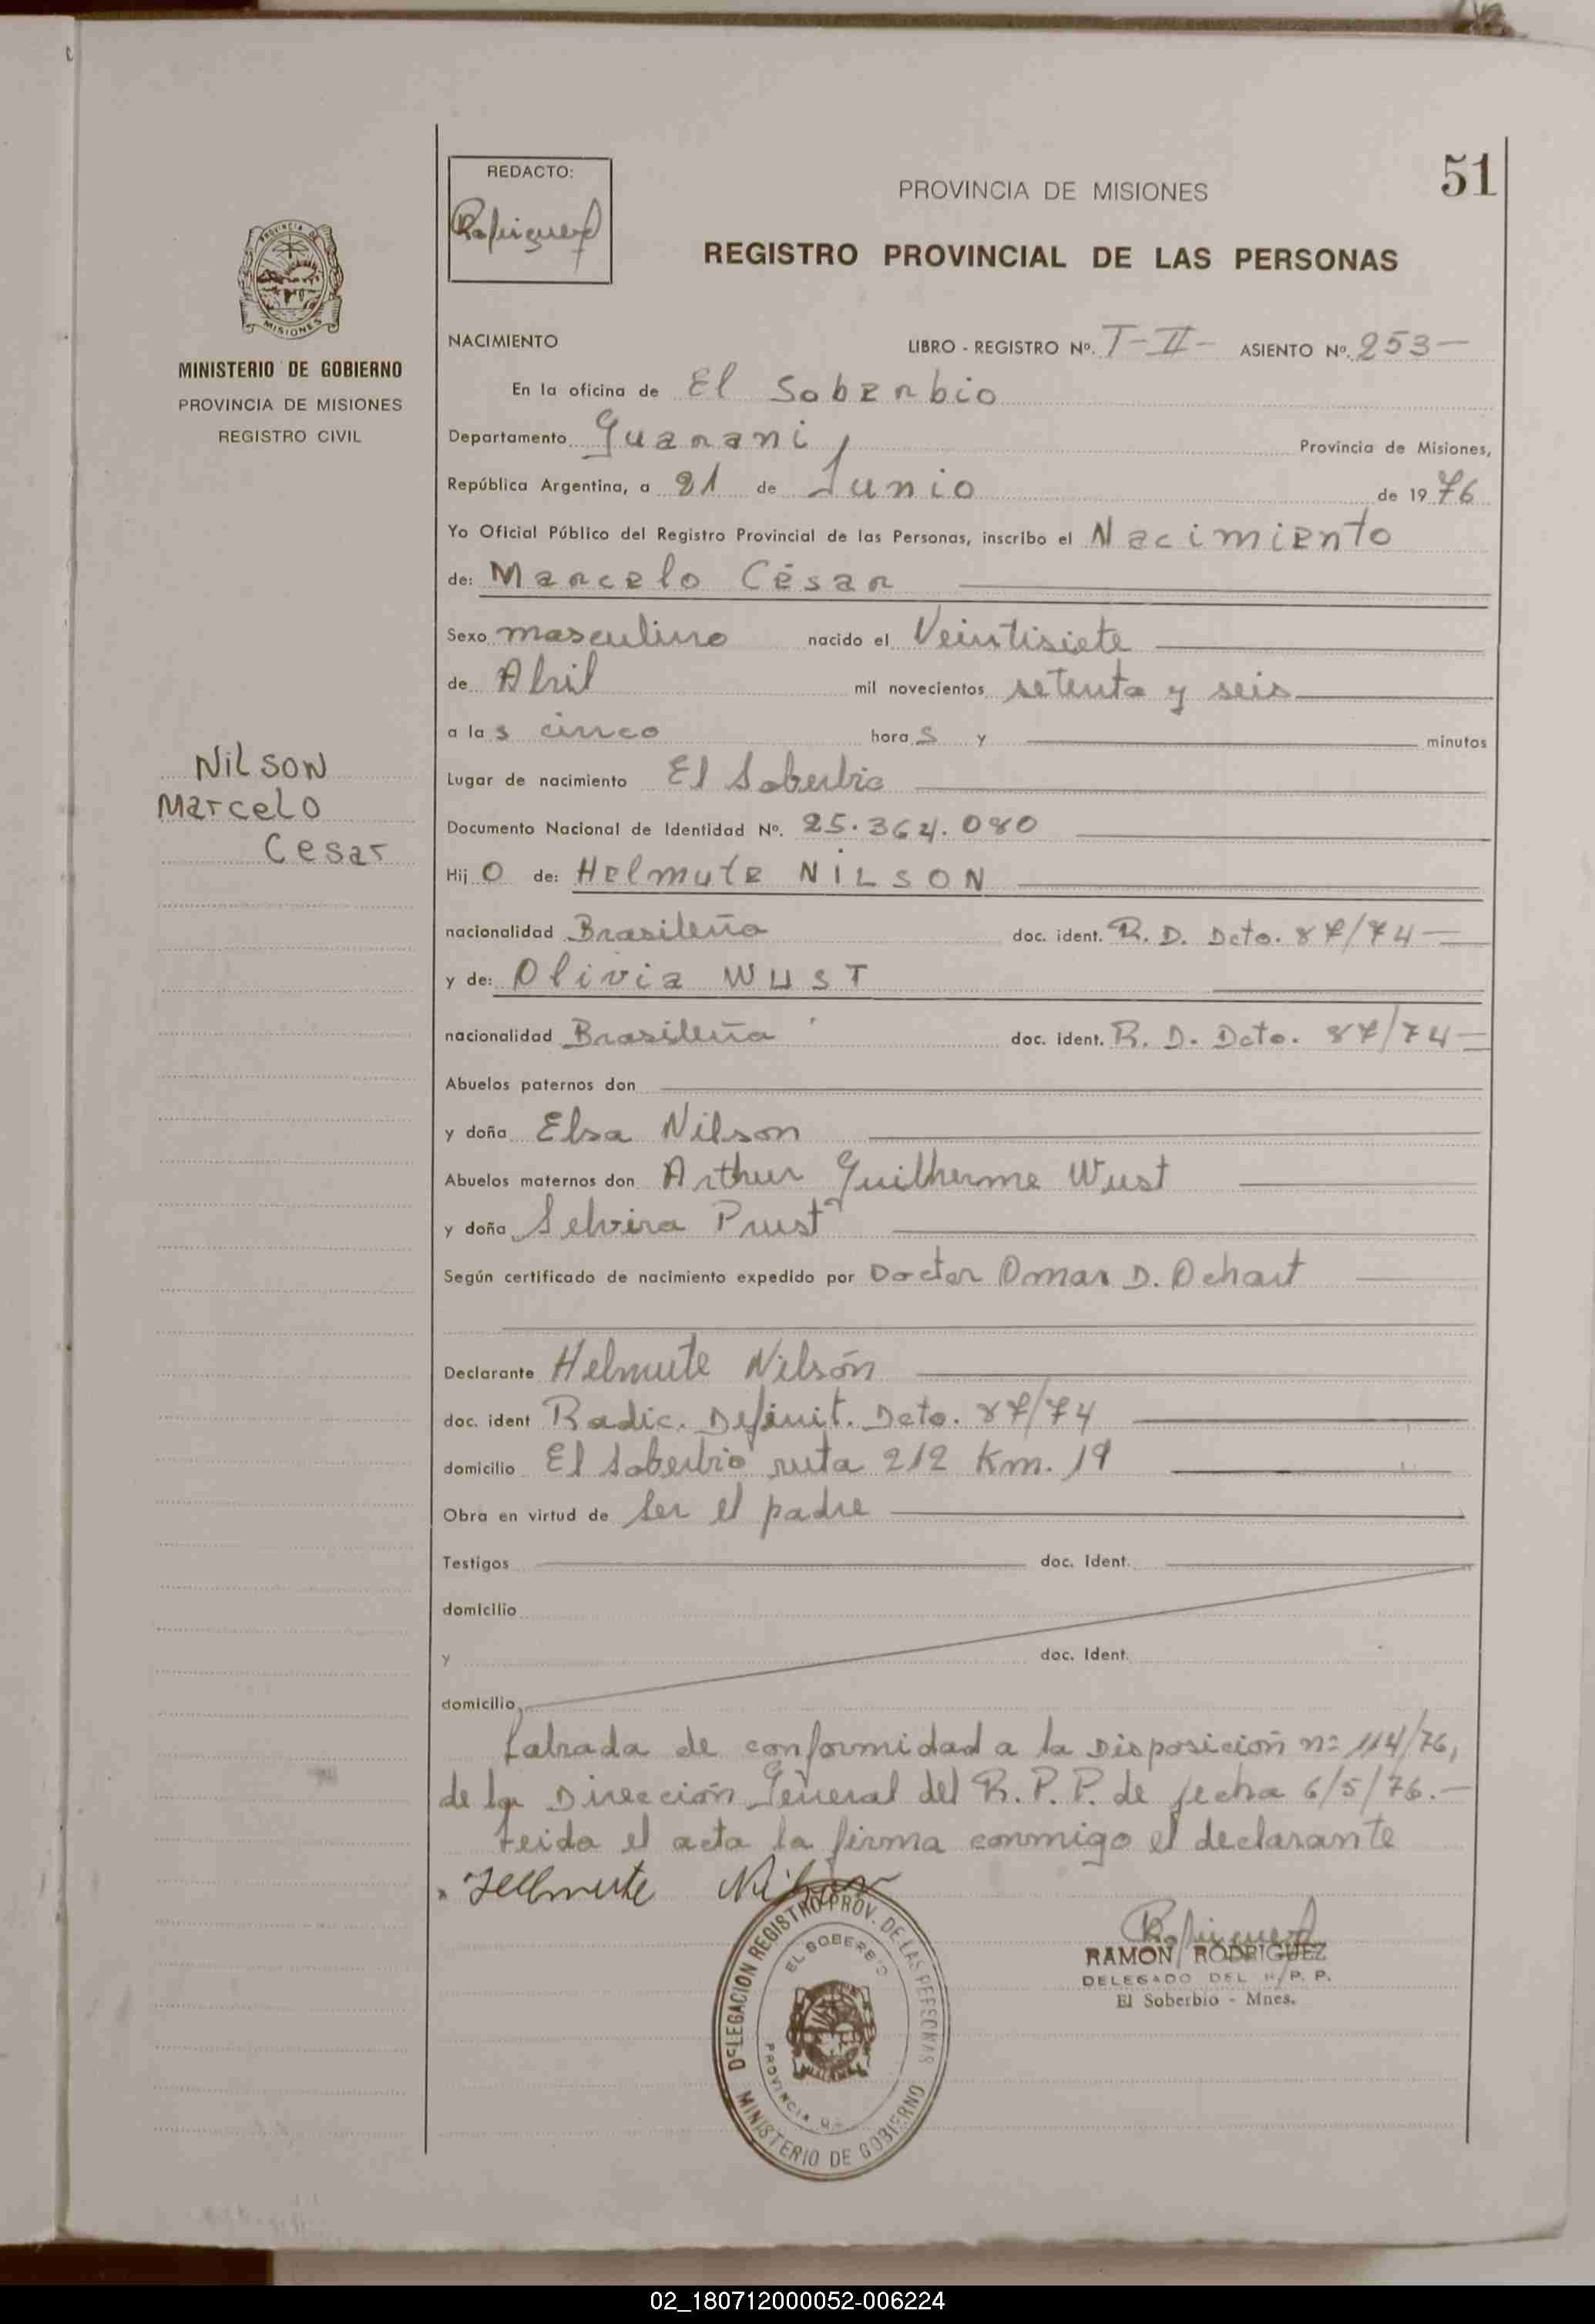 51
REDACTO:
Rodriguez
PROVINCIA DE MISIONES
REGISTRO PROVINCIAL DE LAS PERSONAS
PROVINCIA DE
MISIONES
MINISTERIO DE GOBIERNO
PROVINCIA DE MISIONES
REGISTRO CIVIL
NACIMIENTO LIBRO - REGISTRO Nº. T-II- ASIENTO Nº. 253-
En la oficina de El Soberbio
Departamento Guarani Provincia de Misiones,
República Argentina, a 21 de Junio de 1976
Yo Oficial Público del Registro Provincial de las Personas, inscribo el Nacimiento
de: Marcelo César
Sexo masculino nacido el Veintisiete
de Abril mil novecientos setenta y seis
a las cinco horas y minutos
NILSON
Marcelo
Cesar
Lugar de nacimiento El Soberbio
Documento Nacional de Identidad Nº. 25.364.080
Hijo de: Helmute NILSON
nacionalidad Brasileña doc. ident. R. D. Dcto. 87/74-
y de: Olivia WUST
nacionalidad Brasileña doc. ident. R. D. Dcto. 87/74-
Abuelos paternos don
y doña Elsa Nilson
Abuelos maternos don Arthur Guilherme Wust
y doña Selvira Prust
Según certificado de nacimiento expedido por Doctor Omar D. Ochart
Declarante Helmute Nilsón
doc. ident Radic. Definit. Dcto. 87/74
domicilio El Soberbio ruta 212 Km. 19
Obra en virtud de ser el padre
Testigos doc. Ident.
domicilio
y doc. Ident.
domicilio
Labrada de conformidad a la Disposición nº 114/76,
de la Dirección General del R. P. P. de fecha 6/5/76.-
Leida el acta la firma conmigo el declarante
Helmute Nilson
Rodriguez
RAMON RODRIGUEZ
DELEGADO DEL R. P. P.
El Soberbio - Mnes.
DELEGACION REGISTRO PROV. DE LAS PERSONAS
EL SOBERBIO
PROVINCIA DE
MINISTERIO DE GOBIERNO
02_180712000052-006224